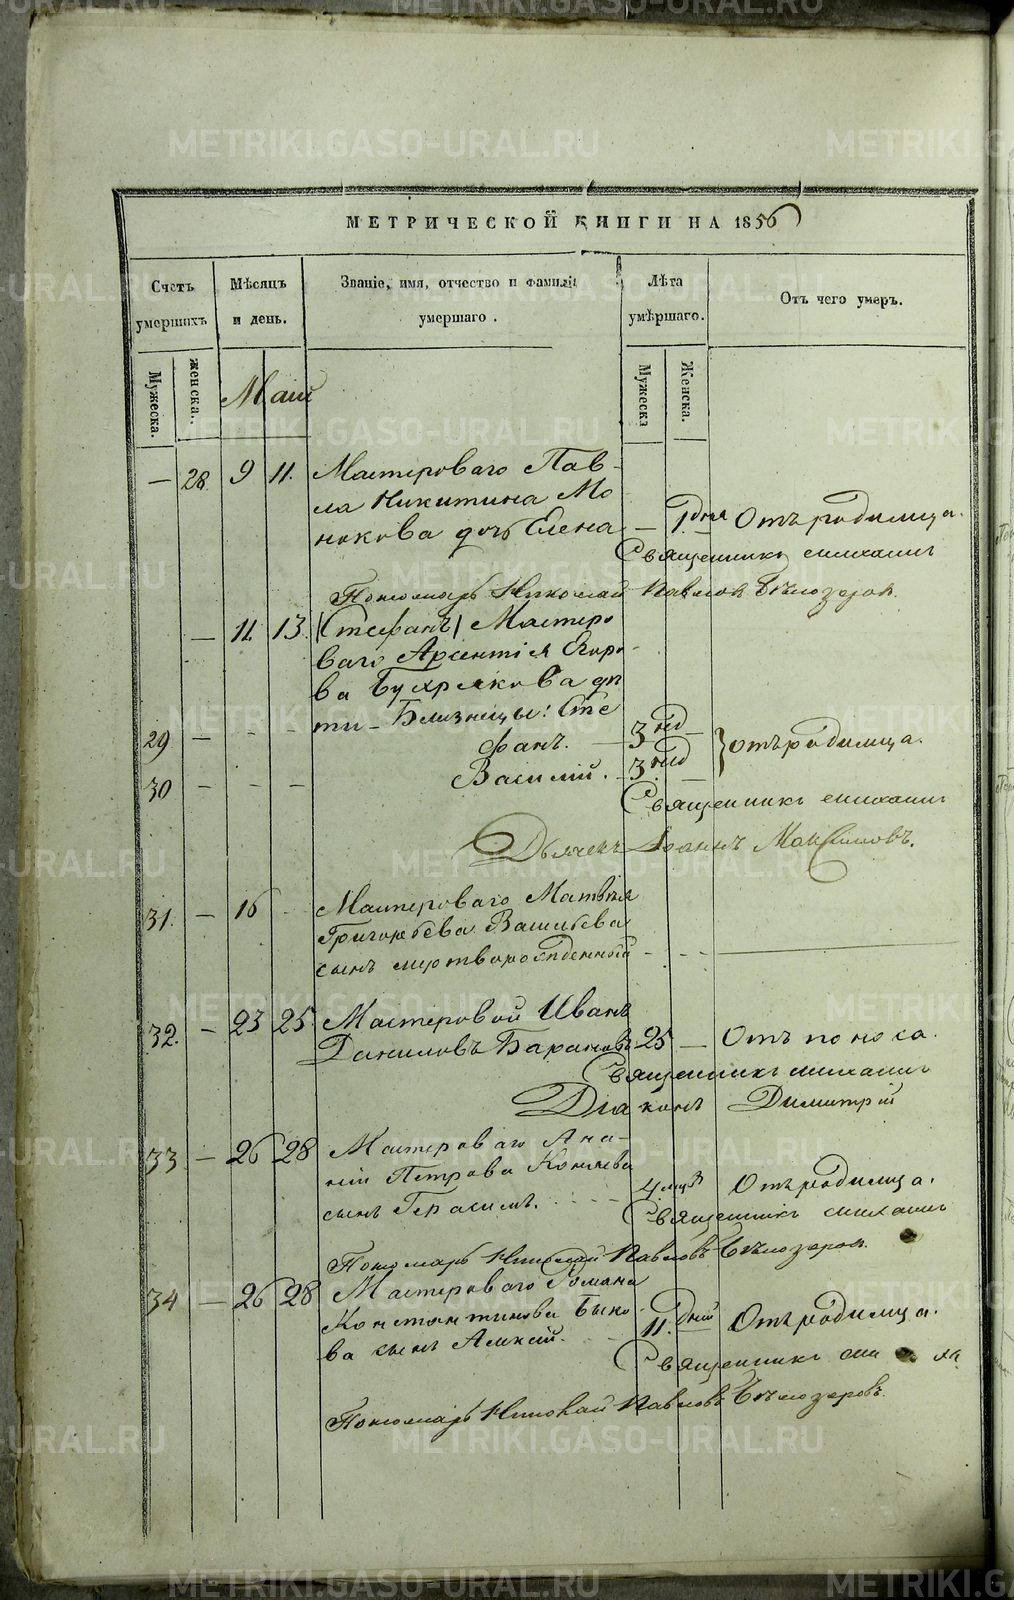 МЕТРИЧЕСКОЙ КНИГИ НА 1856
Счетъ умершихъ
Мѣсяцъ и день.
Званіе, имя, отчество и фамилія умершаго.
Лѣта умершаго.
Отъ чего умеръ.
Мужеска.
женска.
Мужеска
Женска.
Маій
— 28. 9 11. Мастероваго Пав-
ла Никитина Мо
нокова дочь Елена — 1 дня Отъ родимца.
Священникъ Михаилъ
Пономарь Николай Павловъ Бѣлозеровъ.
— 11 13. (Стефанъ) Мастеро
ваго Арсентія Егоро-
ва Бухрякова дѣ
ти - Близнецы: Сте
29 — — — фанъ. — 3 нд —
30 — — — Василій. 3 нд — } отъ родимца.
Священникъ Михаилъ
Дьячекъ Іоаннъ Максимовъ.
31. — 16 Мастероваго Матвѣя
Григорьева Васильева
сынъ мертворожденный
32. — 23 25 Мастеровой Иванъ
Даниловъ Барановъ 25 — Отъ поноса.
Священникъ Михаилъ
Діаконъ Димитрій
33 — 26 28 Мастероваго Ана-
нія Петрова
сынъ Герасимъ. 4 мцѣ Отъ родимца.
Священникъ Михаилъ
Пономарь Николай Павловъ Бѣлозеровъ.
34 — 26 28 Мастероваго Романа
Константинова Быко
ва сынъ Алексій. 11. дній Отъ родимца.
Священникъ Миха
Пономарь Николай Павловъ Бѣлозеровъ.
METRIKI.GASO-URAL.RU